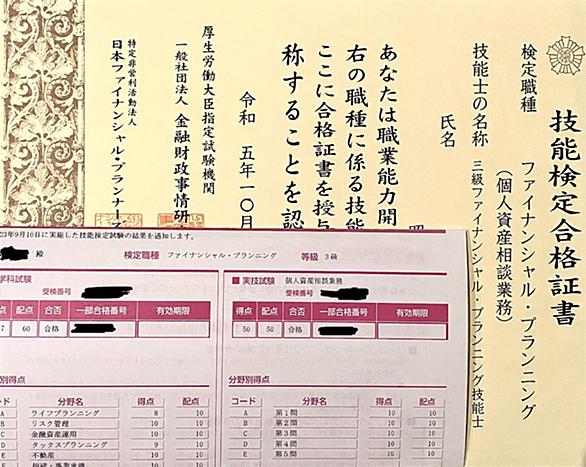 技能検定合格証書
検定職種 ファイナンシャル・プランニング
(個人資産相談業務)
技能士の名称 三級ファイナンシャル・プランニング技能士
氏名
あなたは職業能力開
右の職種に係る技能
ここに合格証書を授与
称することを認
令和 五年一〇月
厚生労働大臣指定試験機関
一般社団法人 金融財政事情研
特定非営利活動法人
日本ファイナンシャル・プランナー
23年9月10日に実施した技能検定試験の結果を通知します。
殿 検定職種 ファイナンシャル・プランニング 等級 3級
学科試験
受検番号
得点 配点 合否 一部合格番号 有効期限
7 60 合格
分野別得点
コード 分野名 得点 配点
A ライフプランニング 8 10
B リスク管理 10 10
C 金融資産運用 10 10
D タックスプランニング 9 10
E 不動産 10 10
相続・事業承継 10 10
■ 実技試験 個人資産相談業務
受検番号
得点 配点 合否 一部合格番号 有効期限
50 50 合格
分野別得点
コード 分野名 得点 配点
A 第1問 10 10
B 第2問 10 10
C 第3問 10 10
D 第4問 10 10
E 第5問 10 10